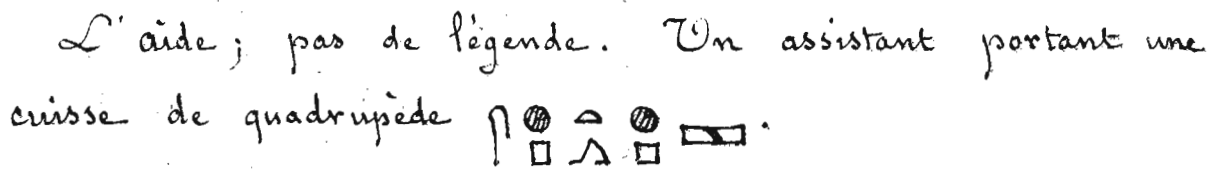 L'aide; pas de légende. Un assistant portant une
cuisse de quadrupède 𓋴𓐍𓊪𓏏𓂻𓐍𓊪𓈙.